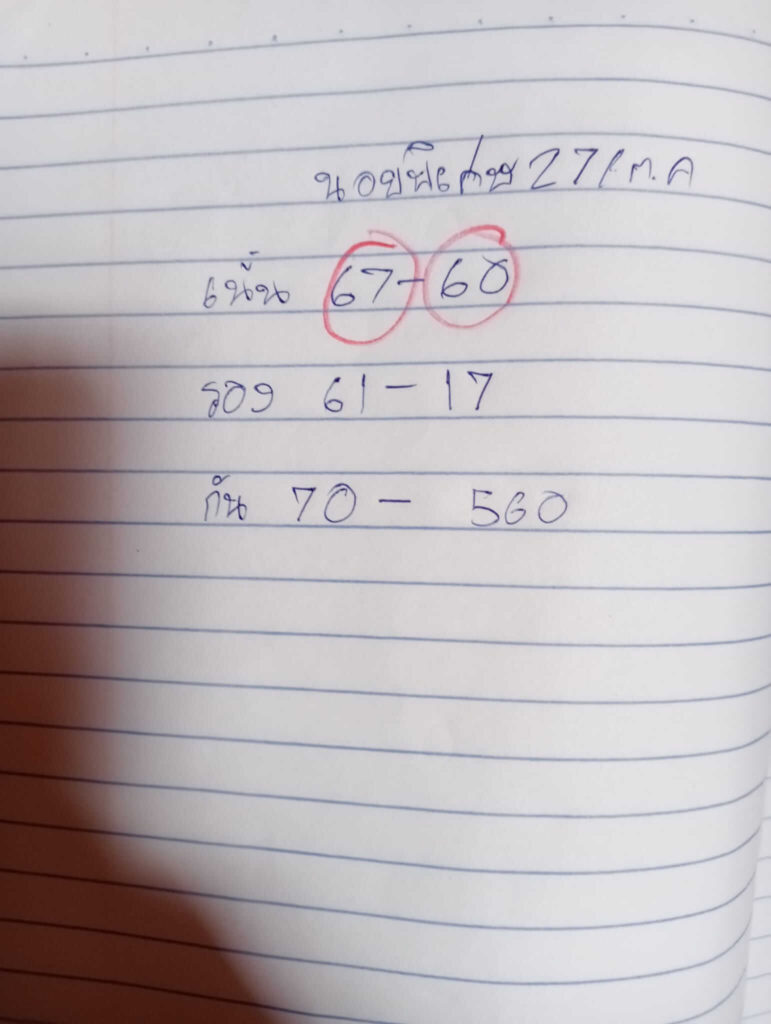 นอยพิเศษ 27/ต.ค
เน้น 67-60
รอง 61-17
กัน 70- 560